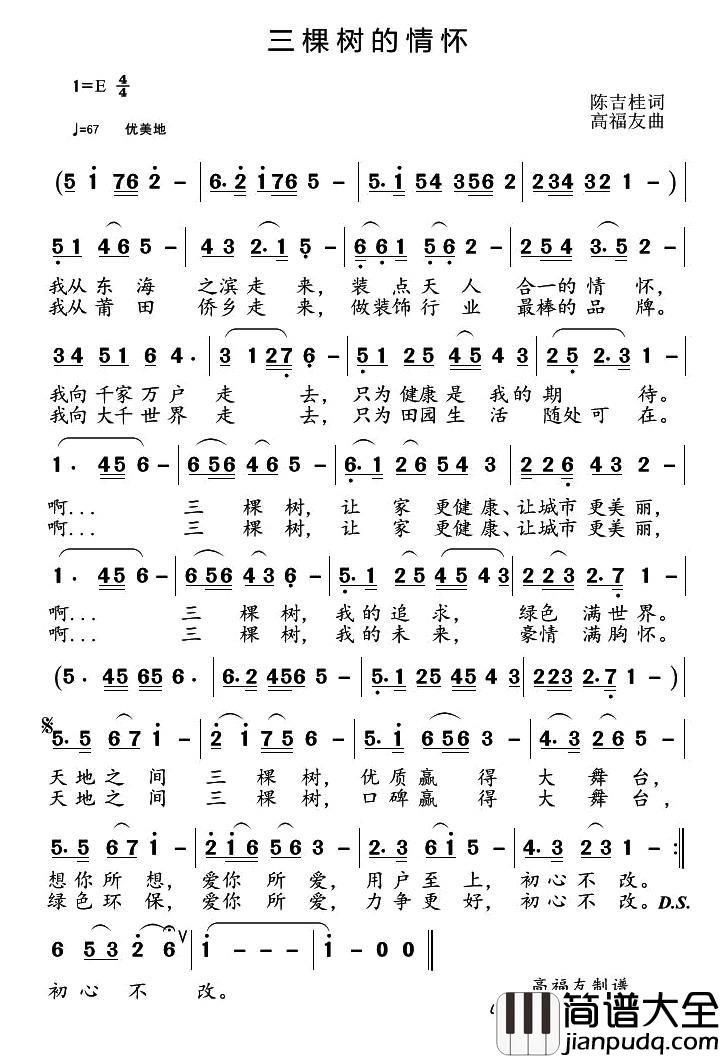 三棵树的情怀
1=E 4/4
陈吉桂词
♩=67 优美地
高福友曲
(5 1 76 2 - | 6. 2 176 5 - | 5. 1 54 356 2 | 234 32 1 - )|
51 465 - | 43 2.1 5 - | 661 56 2 - | 254 3.5 2 - |
我从东海 之滨走来，装点天人 合一的情怀，
我从莆田 侨乡走来，做装饰行业 最棒的品牌。
34 51 6 4. | 3 127 6 - | 51 25 45 43 | 25 2.3 1 - |
我向千家万户走 去，只为健康是 我的期 待。
我向大千世界走 去，只为田园生 活 随处可在。
1. 45 6 - | 656 465 - | 6.1 2654 3 | 226 43 2 - |
啊... 三 棵树，让 家 更健康、让城市更美丽，
啊... 三 棵树，让 家 更健康、让城市更美丽，
1. 45 6 - | 656 43 6 - | 5.1 25 45 43 | 223 2.7 1 - |
啊... 三 棵树，我的追 求， 绿色 满世界。
啊... 三 棵树，我的未 来， 豪情 满胸怀。
(5. 45 65 6. | 6.2 4565 - | 5.1 25 45 3 | 223 2.7 1 - )|
𝄋
5.5 67 1 - | 2 1 75 6 - | 5.6 1 656 - | 4.3 26 5 - |
天地之间 三 棵树，优质赢 得 大 舞台，
天地之间 三 棵树，口碑赢 得 大 舞台，
5.5 67 1 - | 216 56 3 - | 2.3 61 5 - | 4.3 23 1 - :‖
想你所想，爱你 所爱，用户至上，初心不改。
绿色环保，爱你 所爱，力争更好，初心不改。D.S.
6 53 2 6 V | 1 - - - | 1 - 0 0 ‖
初 心 不 改。
高福友制谱
简谱大全
jianpudq.com